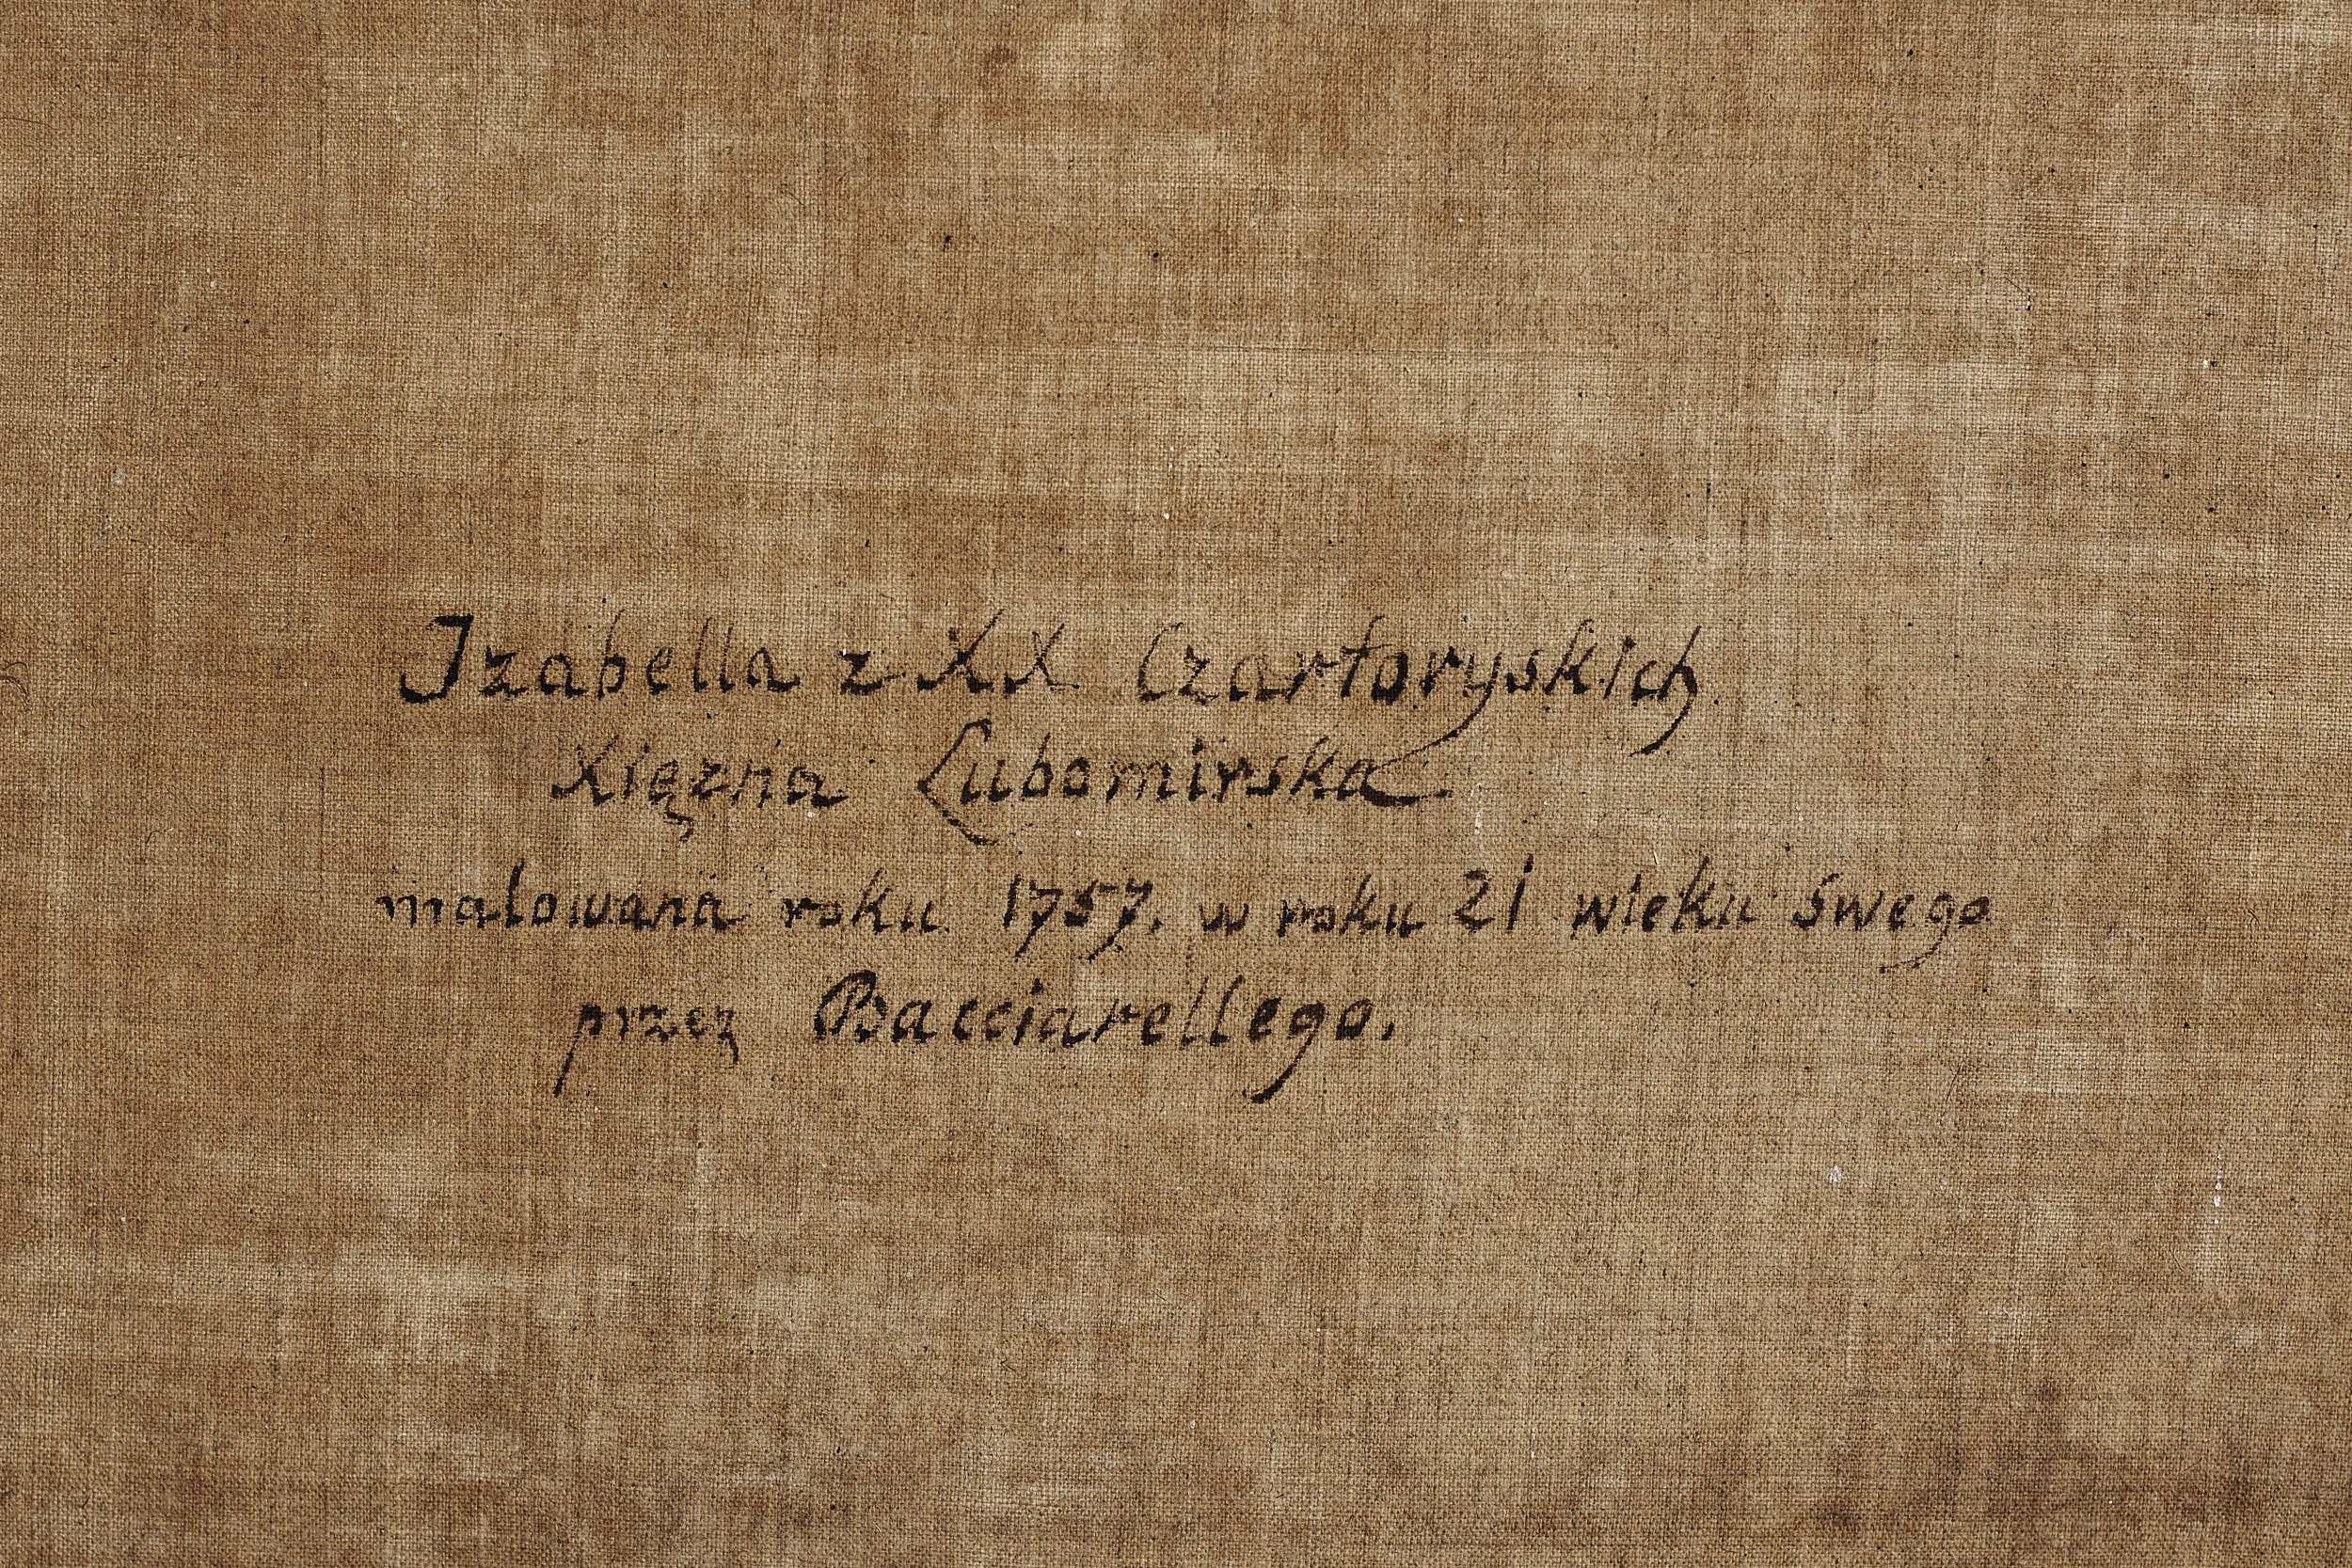 Izabella z XX Czartoryskich
Xięzna Lubomirska
malowana roku 1757. w roku 21 wieku swego
przez Bacciarellego.